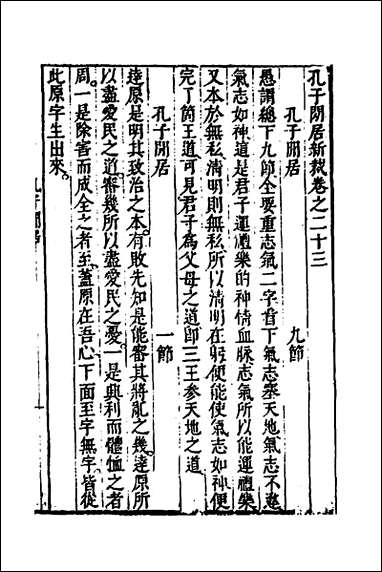 孔子閒居新裁卷之二十三
孔子閒居 九節
愚謂總下九節全要重志氣二字首下氣志塞天地氣志不違
氣志如神道是君子運禮樂的神情血脉志氣所以能運禮樂
又本於無私清明則無私所以清明在躬便能使氣志如神便
完了箇王道可見君子為父母之道即三王参天地之道
孔子閒居 一節
達原是明其致治之本有敗先知是能審其將亂之幾達原所
以盡愛民之道審幾所以盡愛民之憂一是興利而體恤之者
周一是除害而成全之者至蓋原在吾心下面至字無字皆從
此原字生出來